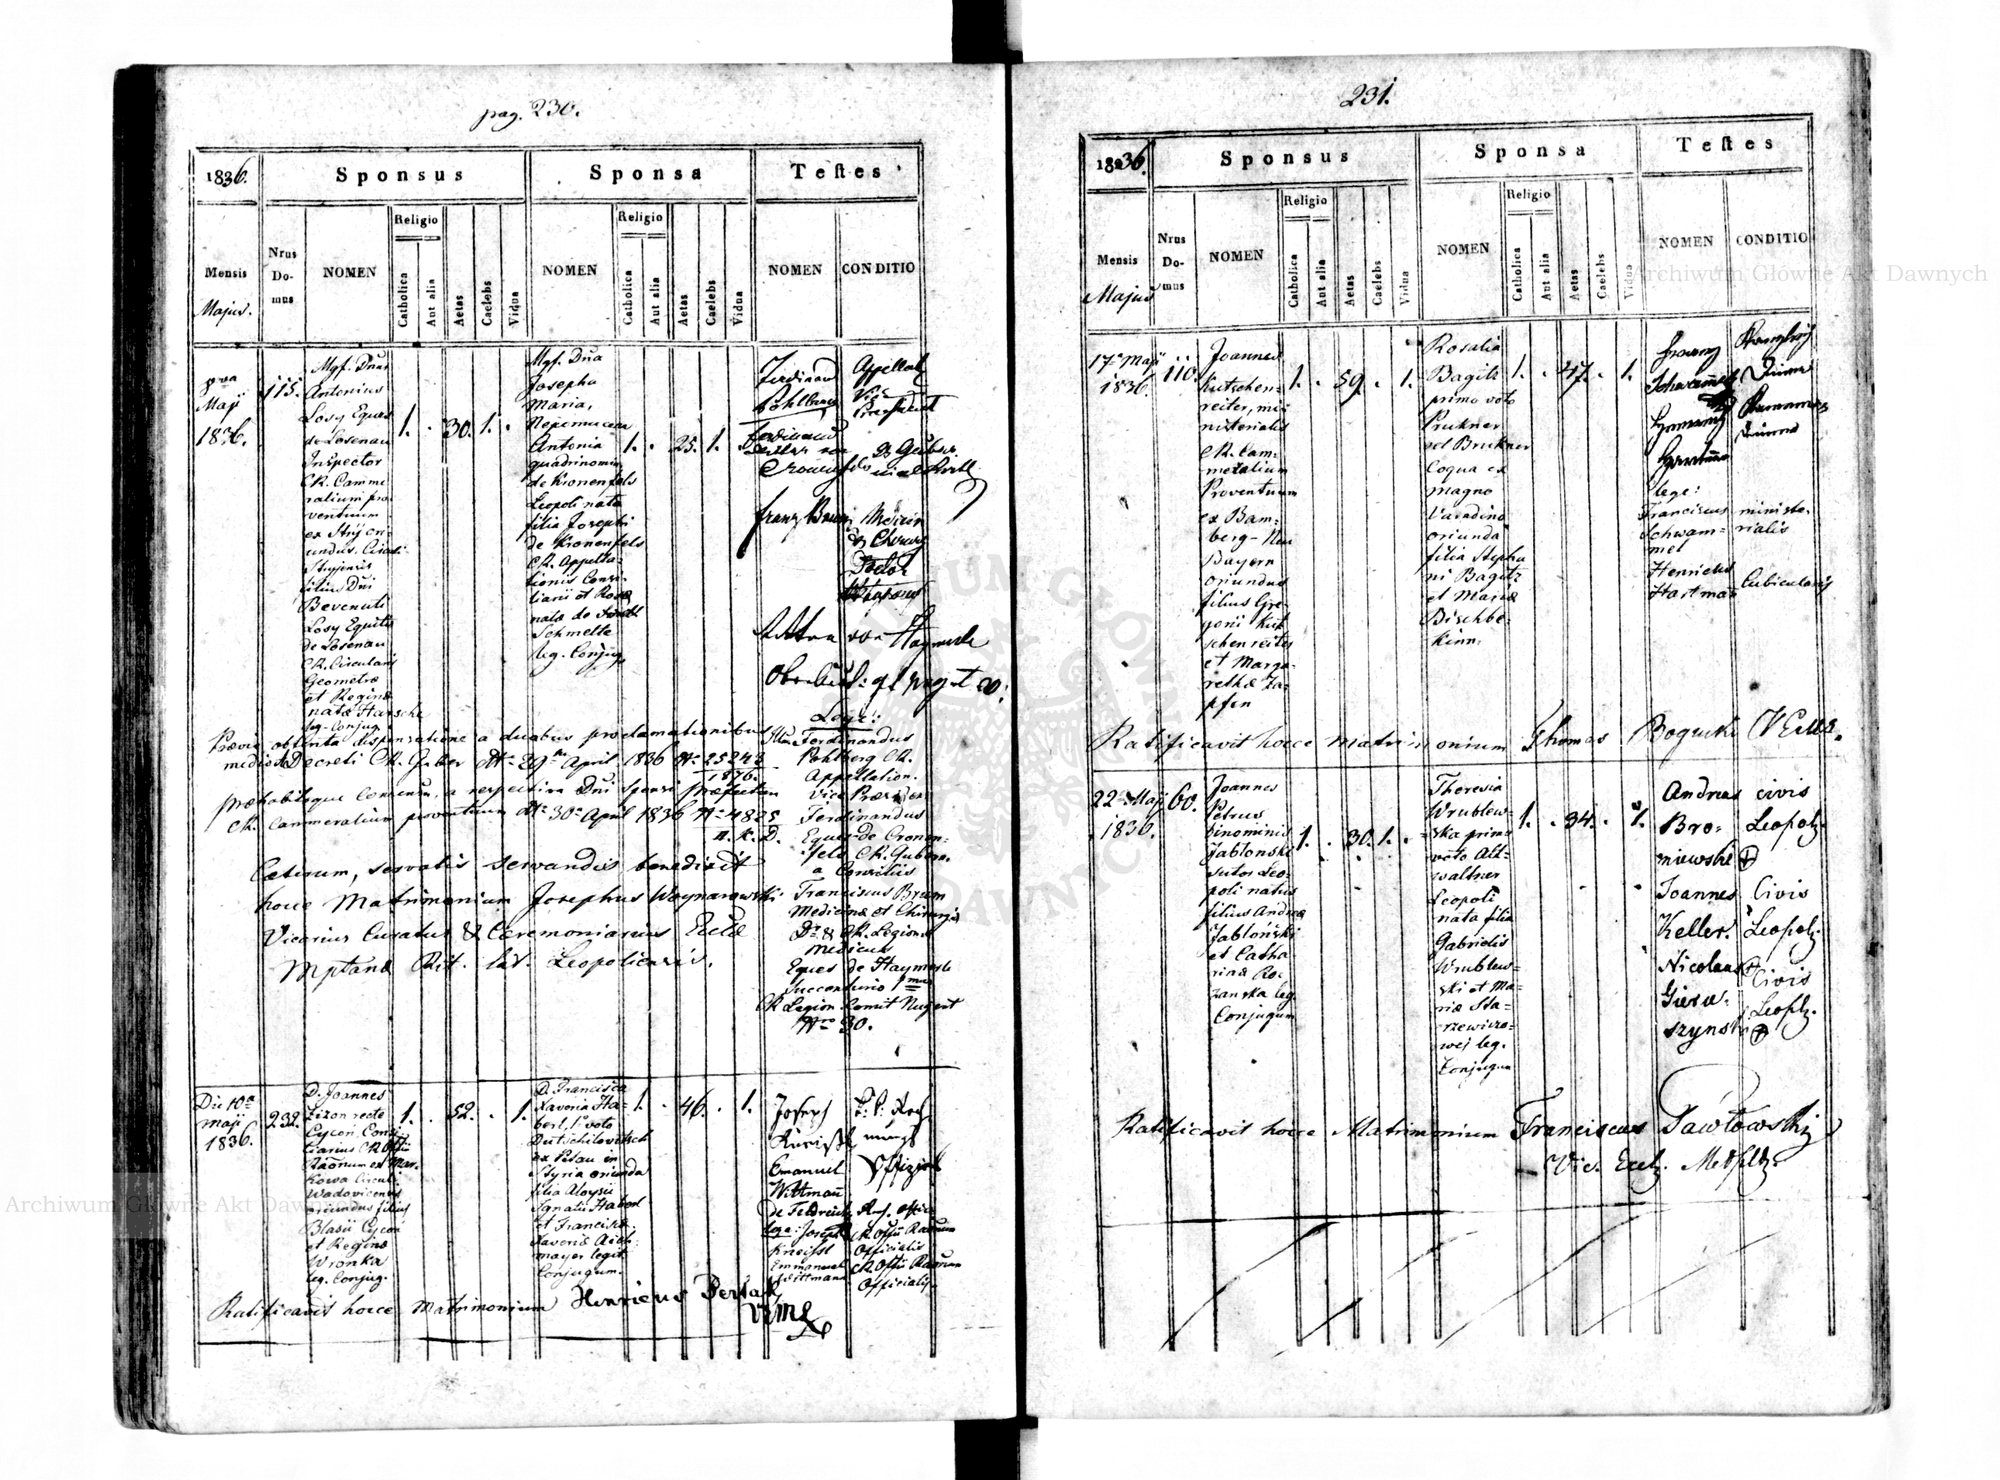 pag. 230.
1836.
Sponsus
Sponsa
Testes
Mensis
Majus.
Nrus
Do-
mus
NOMEN
Religio
Catholica
Aut alia
Aetas
Caelebs
Vidua
NOMEN
Religio
Catholica
Aut alia
Aetas
Caelebs
Vidua
NOMEN
CONDITIO
Maji
1836.
115.
Mgf. Dnus
Antonius
Losy Eques
de Losenau
Inspector
CR. Came
ralium pro-
ventuum
ex Stryj ori-
undus. Circuli
Stryjensis
filius Dni
Bevenuti
Losy Equitis
de Losenau
CR. Circularis
Geometræ
et Reginæ
natæ Harsche
leg. Conjug.
1. . 30. 1. .
Mgf. Dna
Josepha
Maria,
Nepomucena
Antonia
quadrinomia
de Kronenfels
Leopoli nata
filia Josephi
de Kronenfels
CR. Appella-
tionis Consi-
liarii et Rosæ
natæ de
Schmelte
leg. Conjug.
1. . 25. 1. .
Ferdinand
Pohlberg
Ferdinand
Ritter von
Cronenfels
Franz Braun
Appellat
Vice
Præsident
Medicin
& Chirurg
Doctor
von Haymerle
Lege:
Ferdinandus
Pohlberg CR.
Appellation.
Vice Præses
Ferdinandus
Eques de Cronen-
fels CR. Gubern.
a Consiliis
Franciscus Braun
Medicinæ et Chirurgiæ
Dr. & CR. Legionis
Medicus
Eques de Haymerle
CR. Legion. Comit Nugent
Nro 30.
Prævia obtenta dispensatione a duabus proclamationibus
mediote Decreti CR. Guber. dto 29na April. 1836 No 25243
1876.
præhabitoque Consensu, a respectiva Dni Sponsi Præfectura
CR. Cammeralium proventuum dto 30a April 1836 No 4825
Cæterum, servatis servandis benedixit
hocce Matrimonium Josephus Woynarowski
Vicarius Curatus & Cæremoniarius Eccliæ
Mptanæ Rit. Lat. Leopoliensis.
Die 10a
Maji
1836.
232.
D. Joannes
Cizon recte
Cycoń Consi-
liarius CR Offii
Raonum ex Mar-
kowa Circuli
Wadovicensis
oriundus filius
Blasii Cycoń
et Reginæ
Wronka
leg. Conjug.
1. . 52. . 1.
D. Francisca
Xaveria Ha-
berl, 1. voto
Dutschilovitsch
ex Petau in
Styria oriunda
filia Aloysii
Ignatii Haberl
et Franciscæ
Xaveriæ Aich-
mayer legit.
Conjugum.
1. . 46. . 1.
Joseph
Kneissl
Emanuel
Wittmann
de Feldreich
lege: Joseph
Kneissl
Emmanuel
Wittmann
k. k. Rech-
nungs
Offizial
CR Offii Raonum
Officialis
CR. Offii Raonum
Officialis
Ratificavit hocce Matrimonium Henricus Bertak
231.
1836.
Sponsus
Sponsa
Testes
Mensis
Majus
Nrus
Do-
mus
NOMEN
Religio
Catholica
Aut alia
Aetas
Caelebs
Vidua
NOMEN
Religio
Catholica
Aut alia
Aetas
Caelebs
Vidua
NOMEN
CONDITIO
17a Maji
1836.
110.
Joannes
Kutschen-
reiter, mi-
nisterialis
CR. Cam-
meralium
Proventuum
ex Bam-
berg - Neu
Bayern
oriundus
filius Gre-
gorii Kut
schenreiter
et Marga-
rethæ Za-
pfen
1. . 59. . 1.
Rosalia
Bagitz
primo voto
Prukner
vel Brukner
Coqua ex
magno
Varadino
oriunda
filia Stepha
ni Bagitz
et Mariæ
Bischbe-
kinn.
1. . 47. . 1.
Franz
Schwammel
Hartmann
lege:
Franciscus
Schwam-
mel
Henricus
Hartman
Diener
Diener
ministe-
rialis
Cubicularis
Ratificavit hocce Matrimonium Thomas Bogucki
22a Maji
1836.
60.
Joannes
Petrus
binominis
Jablonski
sutor Leo-
poli natus
filius Andreæ
Jabłoński
et Catha
rinæ Ro-
zanska leg.
Conjugum
1. . 30. 1. .
Theresia
Wrublew-
ska primo
voto Alt-
waltner
Leopoli
nata filia
Gabrielis
Wrublew-
ski et Ma-
riæ Sta-
rzewiczo-
wej leg.
Conjugum
1. . 34. . 1.
Andreas
Bro-
niewski
Joannes
Keller.
Nicolaus
Giera-
szynski
civis
Leopolz.
Civis
Leopolz.
Civis
Leoplz.
Ratificavit hocce Matrimonium Franciscus Pawłowski
Vic. Eccl. Metplz
Archiwum Główne Akt Dawnych
Archiwum Główne Akt Dawnych